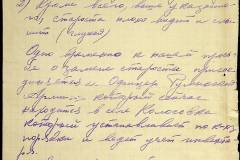 2) Кроме всего, выше указанно-
го, староста плохо видит и слы-
шит (глухой)
Одновременно к нашей прось-
бе о замене старосты присое-
диняется и Офицер Румынской
Армии, который сейчас
находится в селе Колосовка
который устанавливает по-
рядки и ведет учет